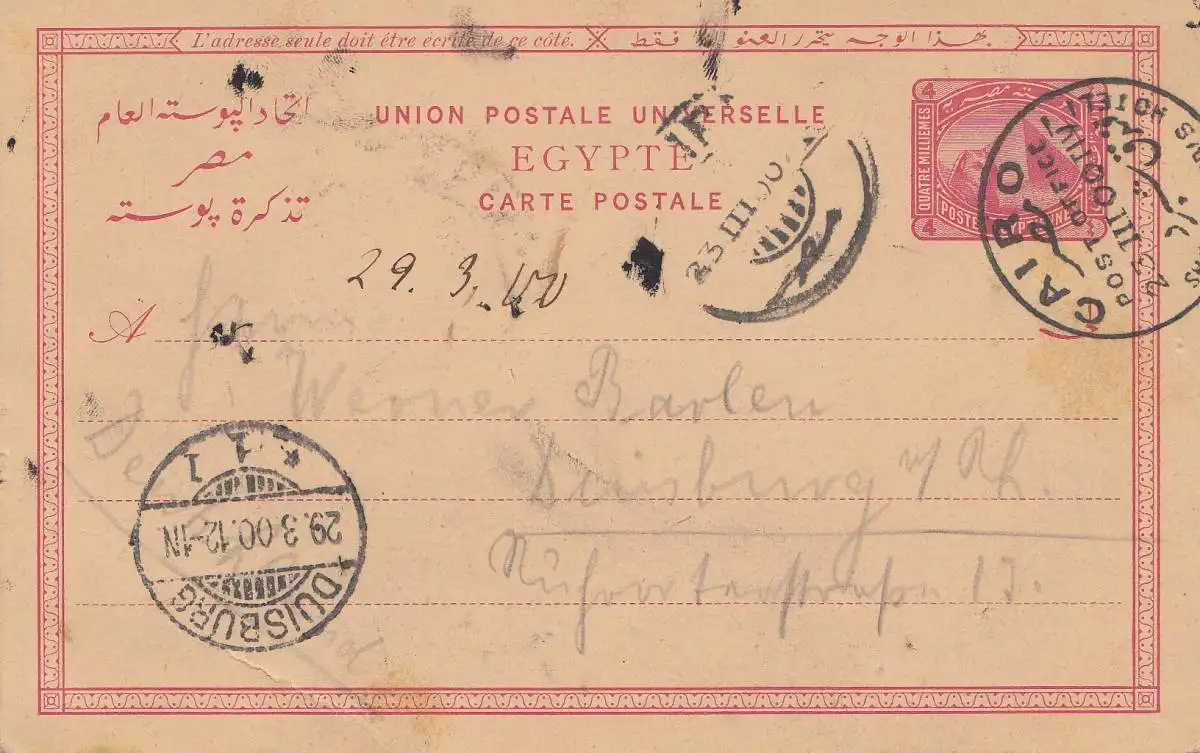 L'adresse seule doit être écrite de ce côté. بهذا الوجه يتحرر العنوان فقط
اتحاد البوستة العام
مصر
تذكرة بوسته
UNION POSTALE UNIVERSELLE
EGYPTE
CARTE POSTALE
4
QUATRE MILLIEMES
POSTES EGYPTIENNES
4
CAIRO
POST-OFFICE
HOTEL
23 III 00
29. 3. 00
A
Werner Barlen
Duisburg a/ Rh.
Ruhrorterstrasse 17.
DUISBURG
29.3 00.12-1N
1 1